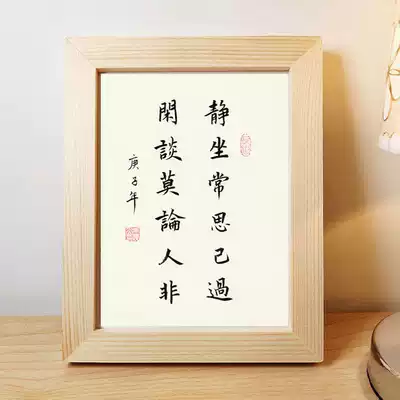 静坐常思己過
閑談莫論人非
庚子年